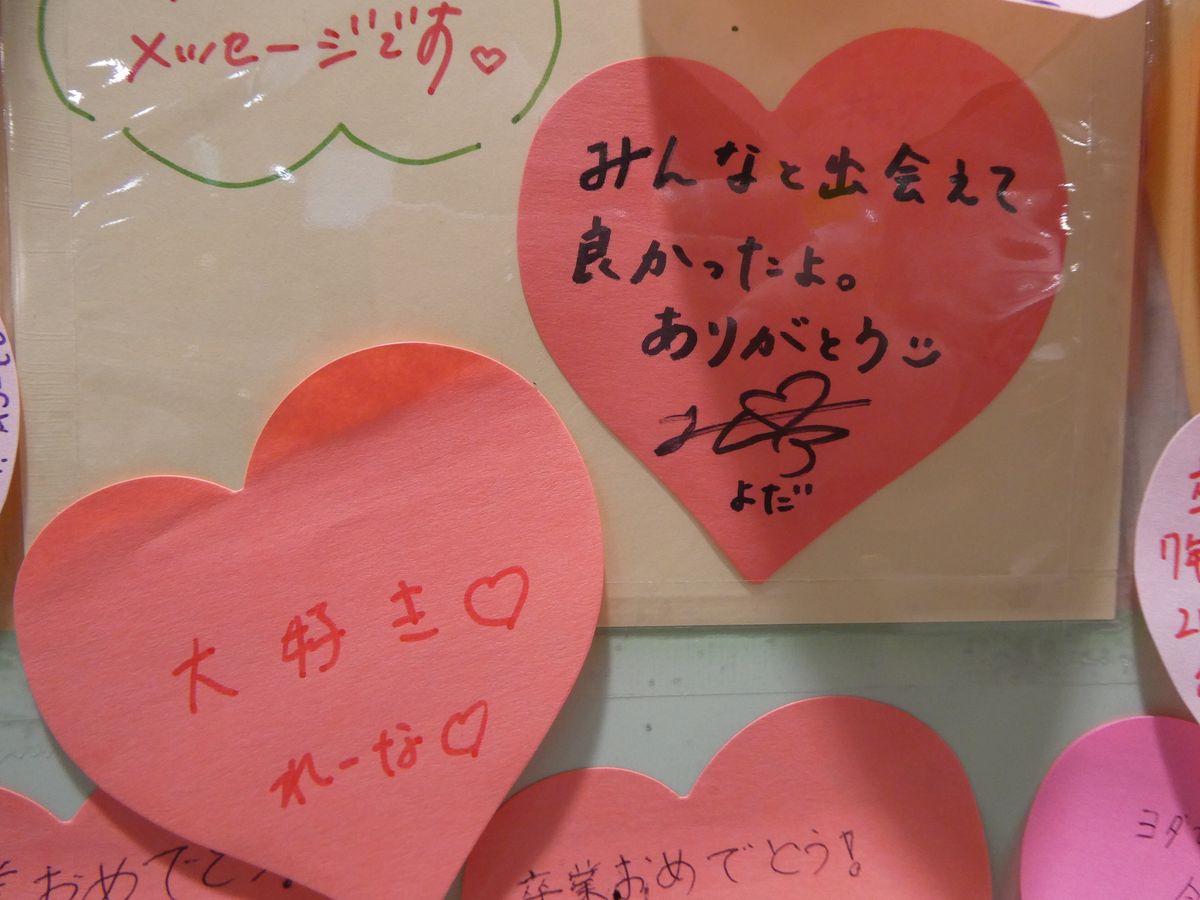 メッセージです♡
みんなと出会えて
良かったよ。
ありがとう
よだ
大好き♡
れーな♡
業おめでとう!
卒業おめでとう!
ヨダ